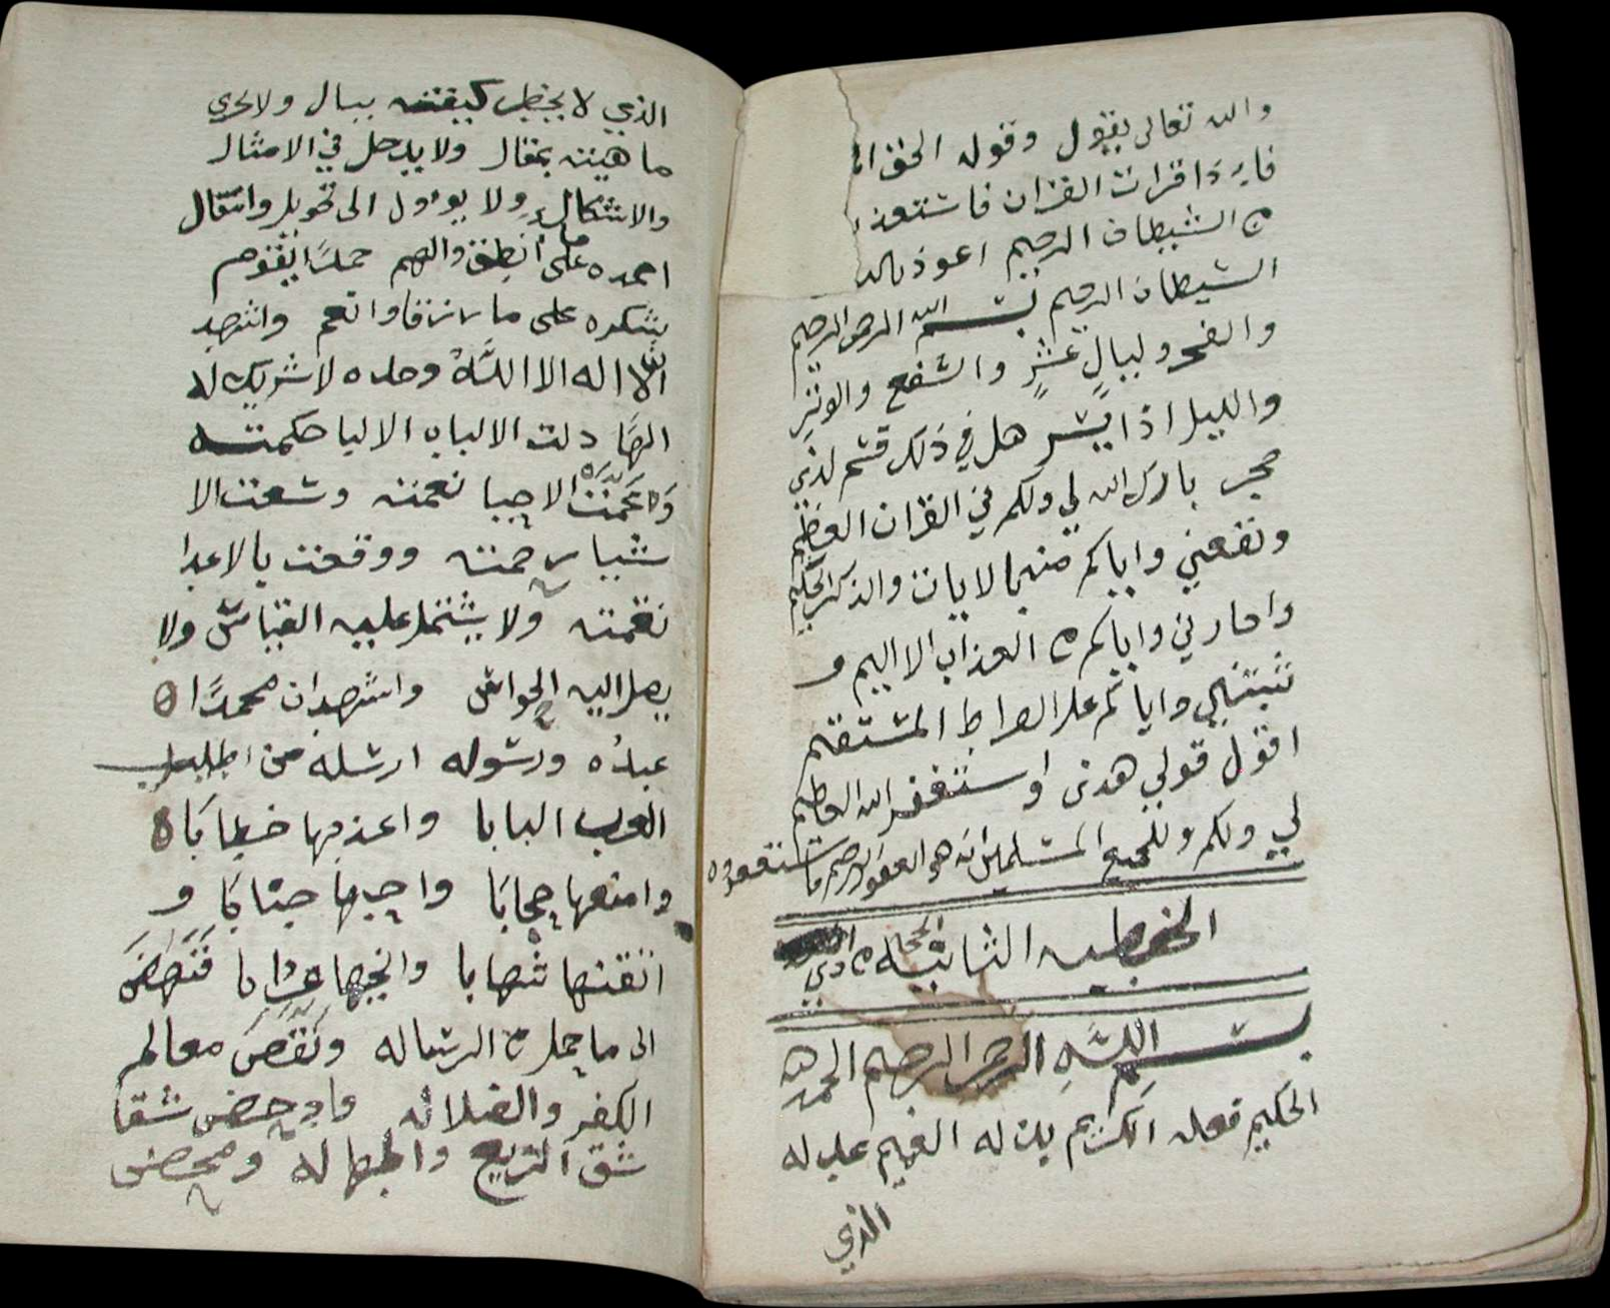 والله تعالى يقول وقوله الحق
فاذا قرات القران فاستعذ
الشيطان الرجيم اعوذ بالله
الشيطان الرجيم بسم الله الرحمن الرحيم
والفجر وليالٍ عشرٍ والشفع والوتر
والليل اذا يسر هل في ذلك قسم لذي
حجر بارك الله لي ولكم في القران العظيم
ونفعني واياكم منه بالايات والذكر الحكيم
واجارني واياكم العذاب الاليم و
ثبتني واياكم على الصراط المستقيم
اقول قولي هدى واستغفر الله العظيم
لي ولكم ولجميع المسلمين انه هو الغفور الرحيم فاستغفروه
الخطبه الثانيه
بسم اللَّهِ الرحمن الرحيم الحمد لله
الحكيم فعله الكريم بذله العميم عدله
الذي
الذي لا يخطر كيفيته ببال ولا تجري
ماهيته بمقال ولا يدخل في الامثال
والاشكال ولا يوول الى تحويل وانتقال
احمده على ما انطق والهم حمدًا يقوم
بشكره على ما رزقا وانعم واشهد
ان لا اله الا اللَّهُ وحده لا شريك له
الهًا دلت الالباب الالبا حكمته
الاحيا نعمته وسعت الا
شيا رحمته ووقعت بالاعدا
نقمته ولا يشتمل عليه القياس ولا
يصل اليه الحواس واشهد ان محمدًا
عبدُه ورسوله ارسله من اطيب
العرب البابا واعذبها خطابًا
وامنعها حجابًا واحيها جنابًا و
اثقبها شهابا وانجبها فنهض
الى ما حمل الرساله ونقض معالم
الكفر والضلاله وادحض شقا
شق الزيغ والجهاله ومحض